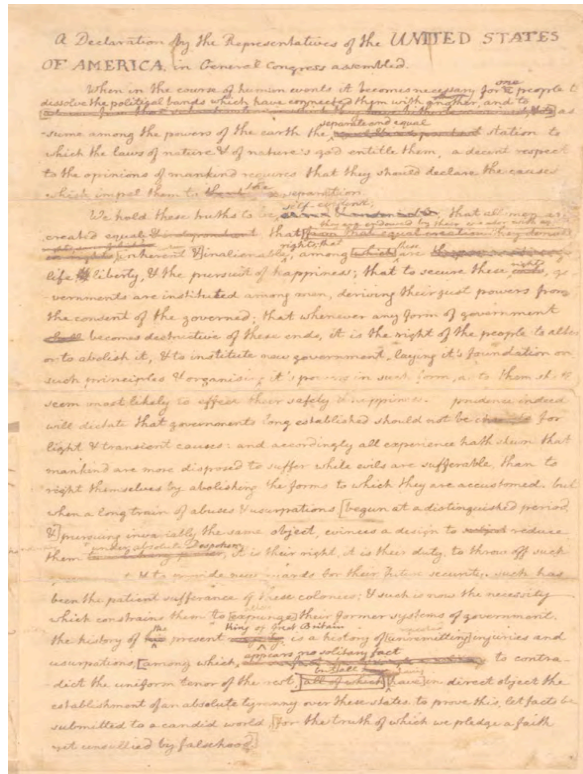 A Declaration by the Representatives of the UNITED STATES
OF AMERICA, in General Congress assembled.
When in the course of human events it becomes necessary for one people to
dissolve the political bands which have connected them with another, and to as
separate and equal
sume among the powers of the earth the station to
which the laws of nature & of nature's god entitle them, a decent respect
to the opinions of mankind requires that they should declare the causes
which impel them to the separation.
self-evident,
We hold these truths to be that all men are
they are endowed by their creator with
created equal that from that equal creation they derived
rights; that these
inherent & inalienable among which are
rights
life liberty, & the pursuit of happiness; that to secure these go
vernments are instituted among men, deriving their just powers from
the consent of the governed; that whenever any form of government
becomes destructive of these ends, it is the right of the people to alter
or to abolish it, & to institute new government, laying it's foundation on
such principles & organising it's powers in such form, as to them shall
seem most likely to effect their safety & happiness. prudence indeed
will dictate that governments long established should not be for
light & transient causes: and accordingly all experience hath shewn that
mankind are more disposed to suffer while evils are sufferable, than to
right themselves by abolishing the forms to which they are accustomed. but
when a long train of abuses & usurpations [begun at a distinguished period,
&] pursuing invariably the same object, evinces a design to reduce
under absolute Despotism
them it is their right, it is their duty, to throw off such
& to provide new guards for their future security. such has
been the patient sufferance of these colonies; & such is now the necessity
which constrains them to [expunge] their former systems of government.
the King of Great Britain
the history of present is a history of [unremitting] injuries and
appears no solitary fact
usurpations, [among which, to contra-
but all
dict the uniform tenor of the rest, all of which] [have] in direct object the
establishment of an absolute tyranny over these states. to prove this, let facts be
submitted to a candid world, [for the truth of which we pledge a faith
yet unsullied by falsehood]